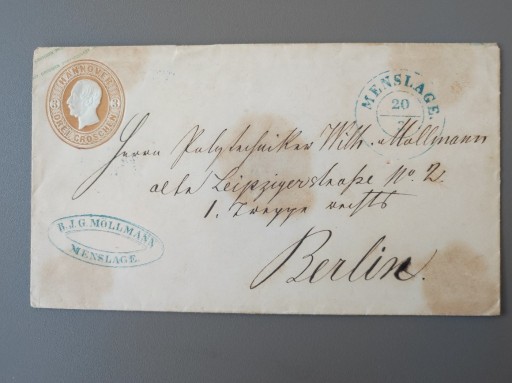 HANNOVER
3 3
DREI GROSCHEN
MENSLAGE.
20
Herrn Polytechniker Wilh. Möllmann
alte Leipzigerstraße No. 2
1. Treppe rechts
Berlin.
B.J.G. MÖLLMANN
MENSLAGE.